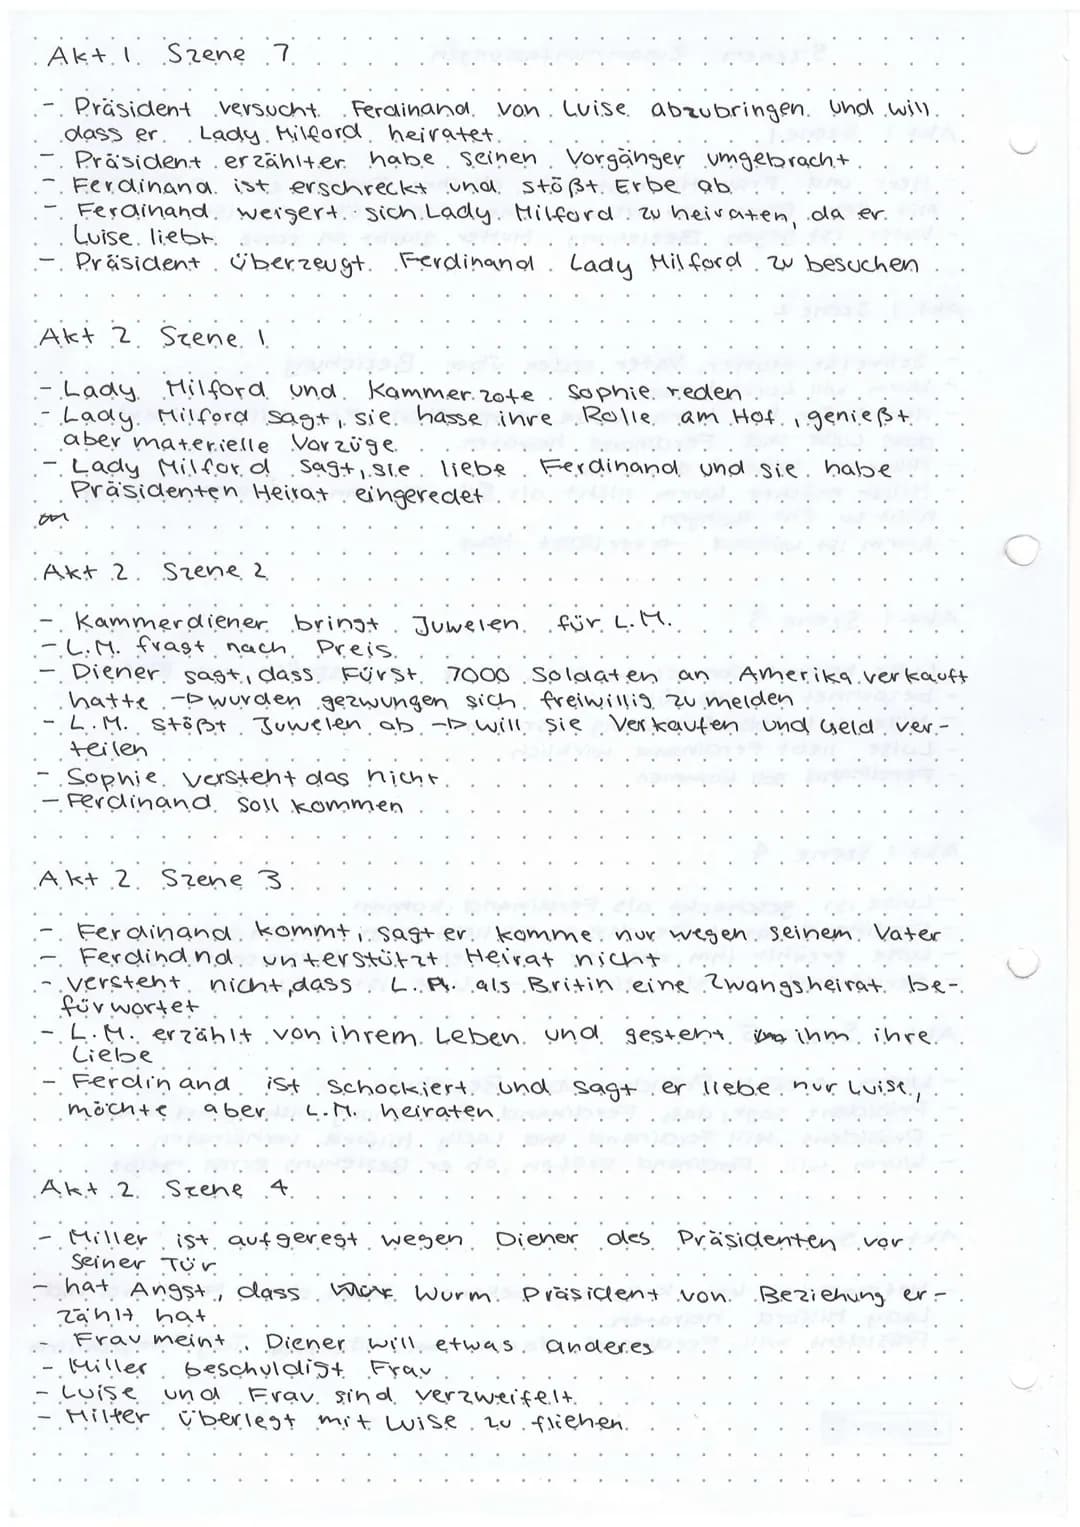 Akt 1 Szene 7
- Präsident versucht Ferdinand von Luise abzubringen und will
dass er Lady Milford heiratet
- Präsident erzählt er habe seinen Vorgänger umgebracht
- Ferdinand ist erschreckt und stößt Erbe ab
- Ferdinand weigert sich Lady Milford zu heiraten, da er
Luise liebt
- Präsident überzeugt Ferdinand Lady Milford zu besuchen
Akt 2 Szene 1
- Lady Milford und Kammerzote Sophie reden
- Lady Milford sagt, sie hasse ihre Rolle am Hof, genießt
aber materielle Vorzüge
- Lady Milford sagt, sie liebe Ferdinand und sie habe
Präsidenten Heirat eingeredet
Akt 2 Szene 2
- Kammerdiener bringt Juwelen für L.M.
- L.M. fragt nach Preis
- Diener sagt, dass Fürst 7000 Soldaten an Amerika verkauft
hatte -> wurden gezwungen sich freiwillig zu melden
- L.M. stößt Juwelen ab -> will sie verkaufen und Geld ver-
teilen
- Sophie versteht das nicht
- Ferdinand soll kommen
Akt 2 Szene 3
- Ferdinand kommt, sagt er komme nur wegen seinem Vater
- Ferdinand unterstützt Heirat nicht
- versteht nicht, dass L.M. als Britin eine Zwangsheirat be-
fürwortet
- L.M. erzählt von ihrem Leben und gesteht ihm ihre
Liebe
- Ferdinand ist schockiert und sagt er liebe nur Luise,
möchte aber L.M. heiraten
Akt 2 Szene 4
- Miller ist aufgeregt wegen Diener des Präsidenten vor
seiner Tür
- hat Angst, dass Wurm Präsident von Beziehung er-
zählt hat
- Frau meint, Diener will etwas anderes
- Miller beschuldigt Frau
- Luise und Frau sind verzweifelt
- Miller überlegt mit Luise zu fliehen.